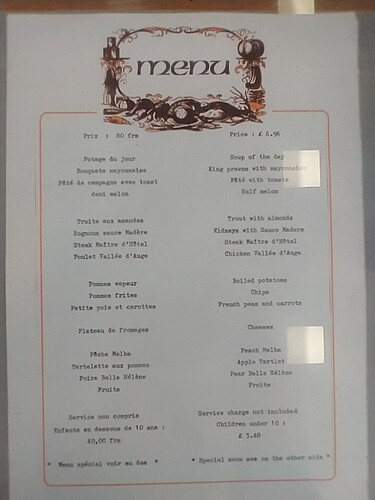 menu
Prix : 80 frs
Price : £ 6.96
Potage du jour
Bouquets mayonnaise
Pâté de campagne avec toast
demi melon
Soup of the day
King prawns with mayonnaise
Pâté with toasts
Half melon
Truite aux amandes
Rognons sauce Madère
Steak Maître d'Hôtel
Poulet Vallée d'Auge
Trout with almonds
Kidneys with Sauce Madere
Steak Maître d'Hôtel
Chicken Vallée d'Auge
Pommes vapeur
Pommes frites
Petits pois et carottes
Boiled potatoes
Chips
French peas and carrots
Plateau de fromages
Cheeses
Pêche Melba
Tartelette aux pommes
Poire Belle Hélène
Fruits
Peach Melba
Apple Tartlet
Pear Belle Hélène
Fruits
Service non compris
Enfants en dessous de 10 ans :
40,00 frs
Service charge not included
Children under 10 :
£ 3.48
* Menu spécial voir au dos *
* Special menu see on the other side *